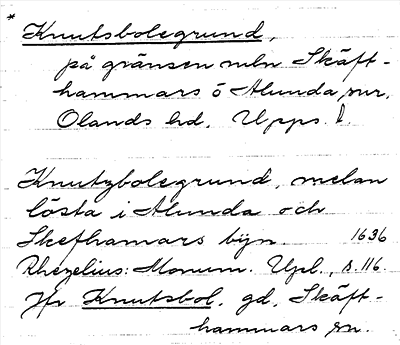 * Knutsbolegrund,
på gränsen mln Skäft-
hammars o Alunda snr.
Olands hd. Upps. l.
Knutzbolegrund, melan
lösta i Alunda och
Skefhamars byn. 1636
Rhezelius: Monum. Upl., s. 116.
Jfr Knutsbol, gd, Skäft-
hammars sn.